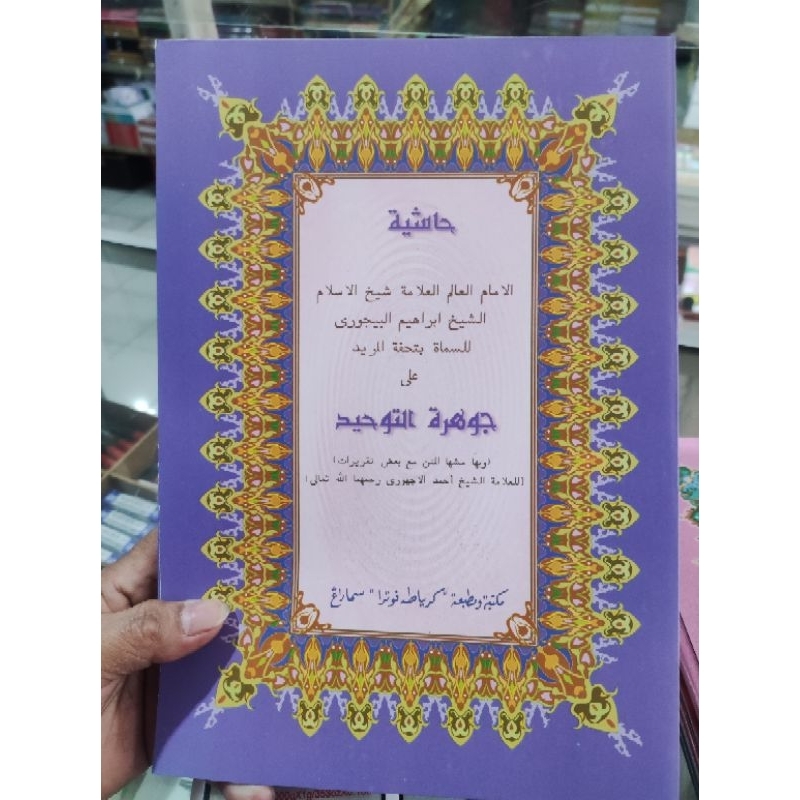 حاشية
الامام العالم العلامة شيخ الاسلام
الشيخ ابراهيم البيجورى
للسماة بتحفة المريد
على
جوهرة التوحيد
(وبها مشها المتن مع بعض تقريرات)
(للعلامة الشيخ أحمد الاجهورى رحمهما الله تعالى)
مكتبة ومطبعة "كرياطه فوترا" سماراغ